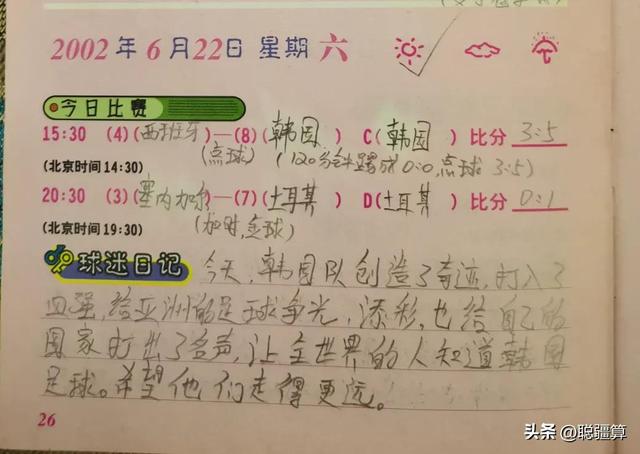 2002年6月22日 星期六
今日比赛
15:30 (4)(西班牙)—(8)(韩国) C(韩国) 比分 3:5
(北京时间14:30) (点球) (120分钟踢成0:0,点球 3:5)
20:30 (3)(塞内加尔)—(7)(土耳其) D(土耳其) 比分 0:1
(北京时间19:30) (加时,金球)
球迷日记 今天,韩国队创造了奇迹,打入了
四强,给亚洲的足球争光,添彩,也给自己的
国家打出了名声,让全世界的人知道韩国
足球。希望他们走得更远。
26
头条 @聪疆算